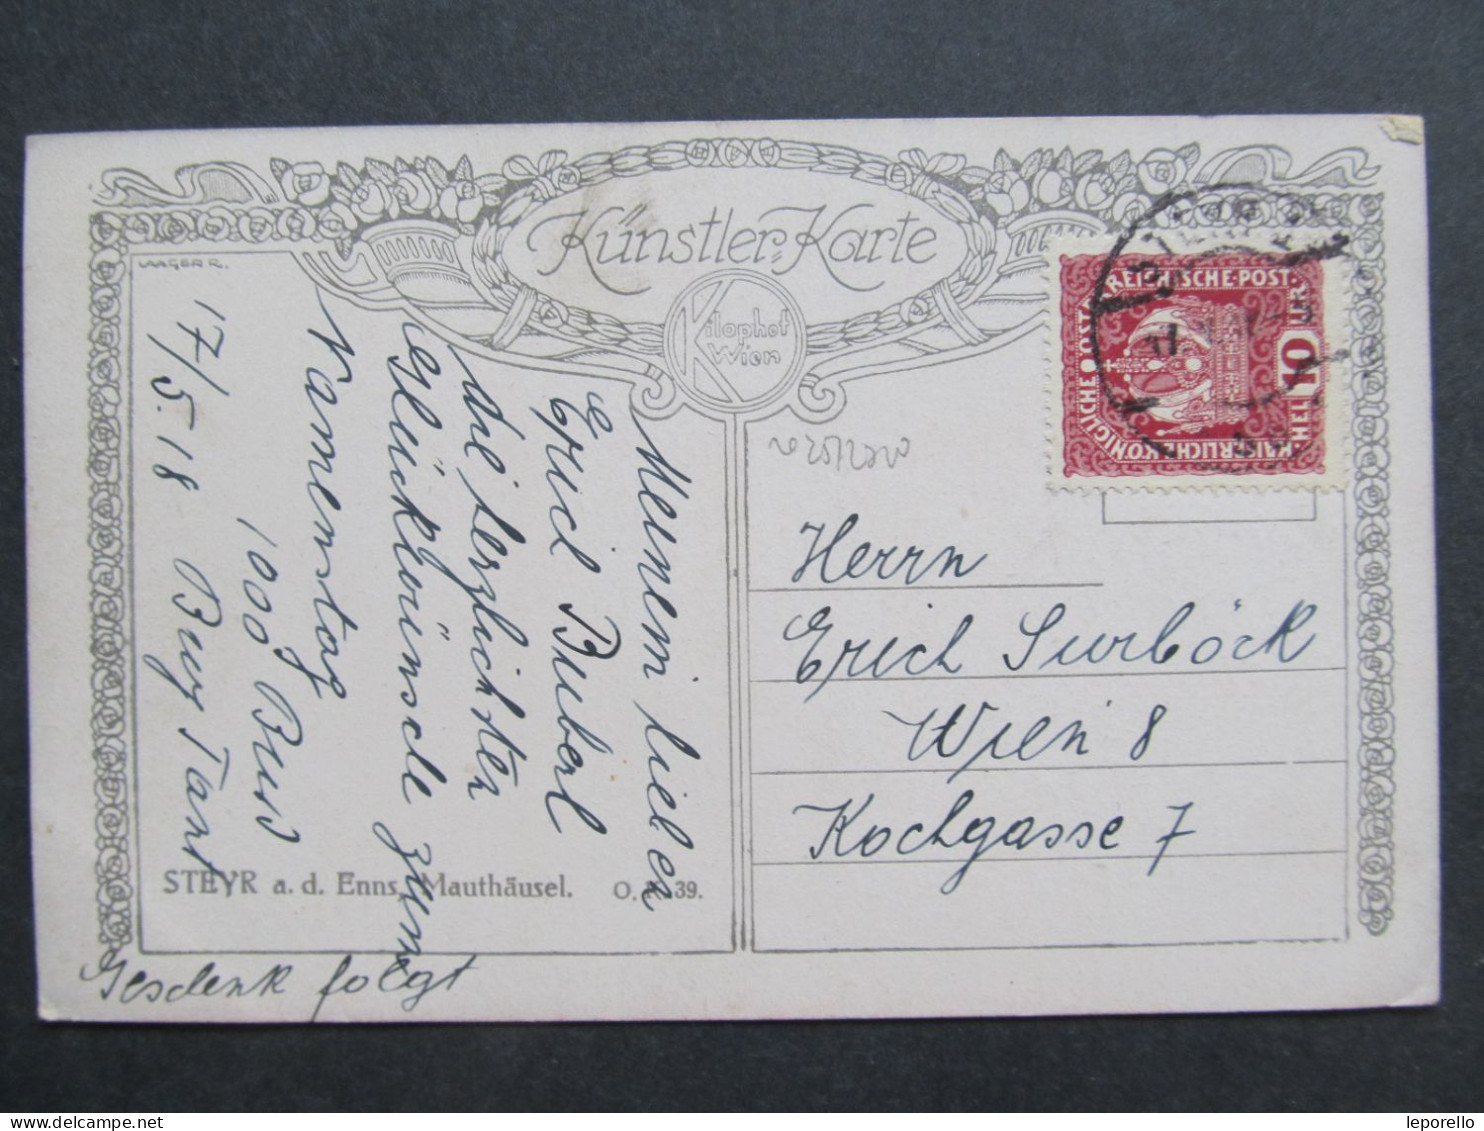 Künstler-Karte
Kilophot
Wien
WAGER R.
Meinem lieben
Erich Buberl
die herzlichsten
Glückwünsche zum
Namenstag
1000 Bussi
17/5.18
Gesdenk folgt
STEYR a. d. Enns, Mauthäusel.
39.
KAISERLICHE KÖNIGLICHE ÖSTERREICHISCHE POST
10
HELLER
Herrn
Erich Surböck
Wien 8
Kochgasse 7
leporello